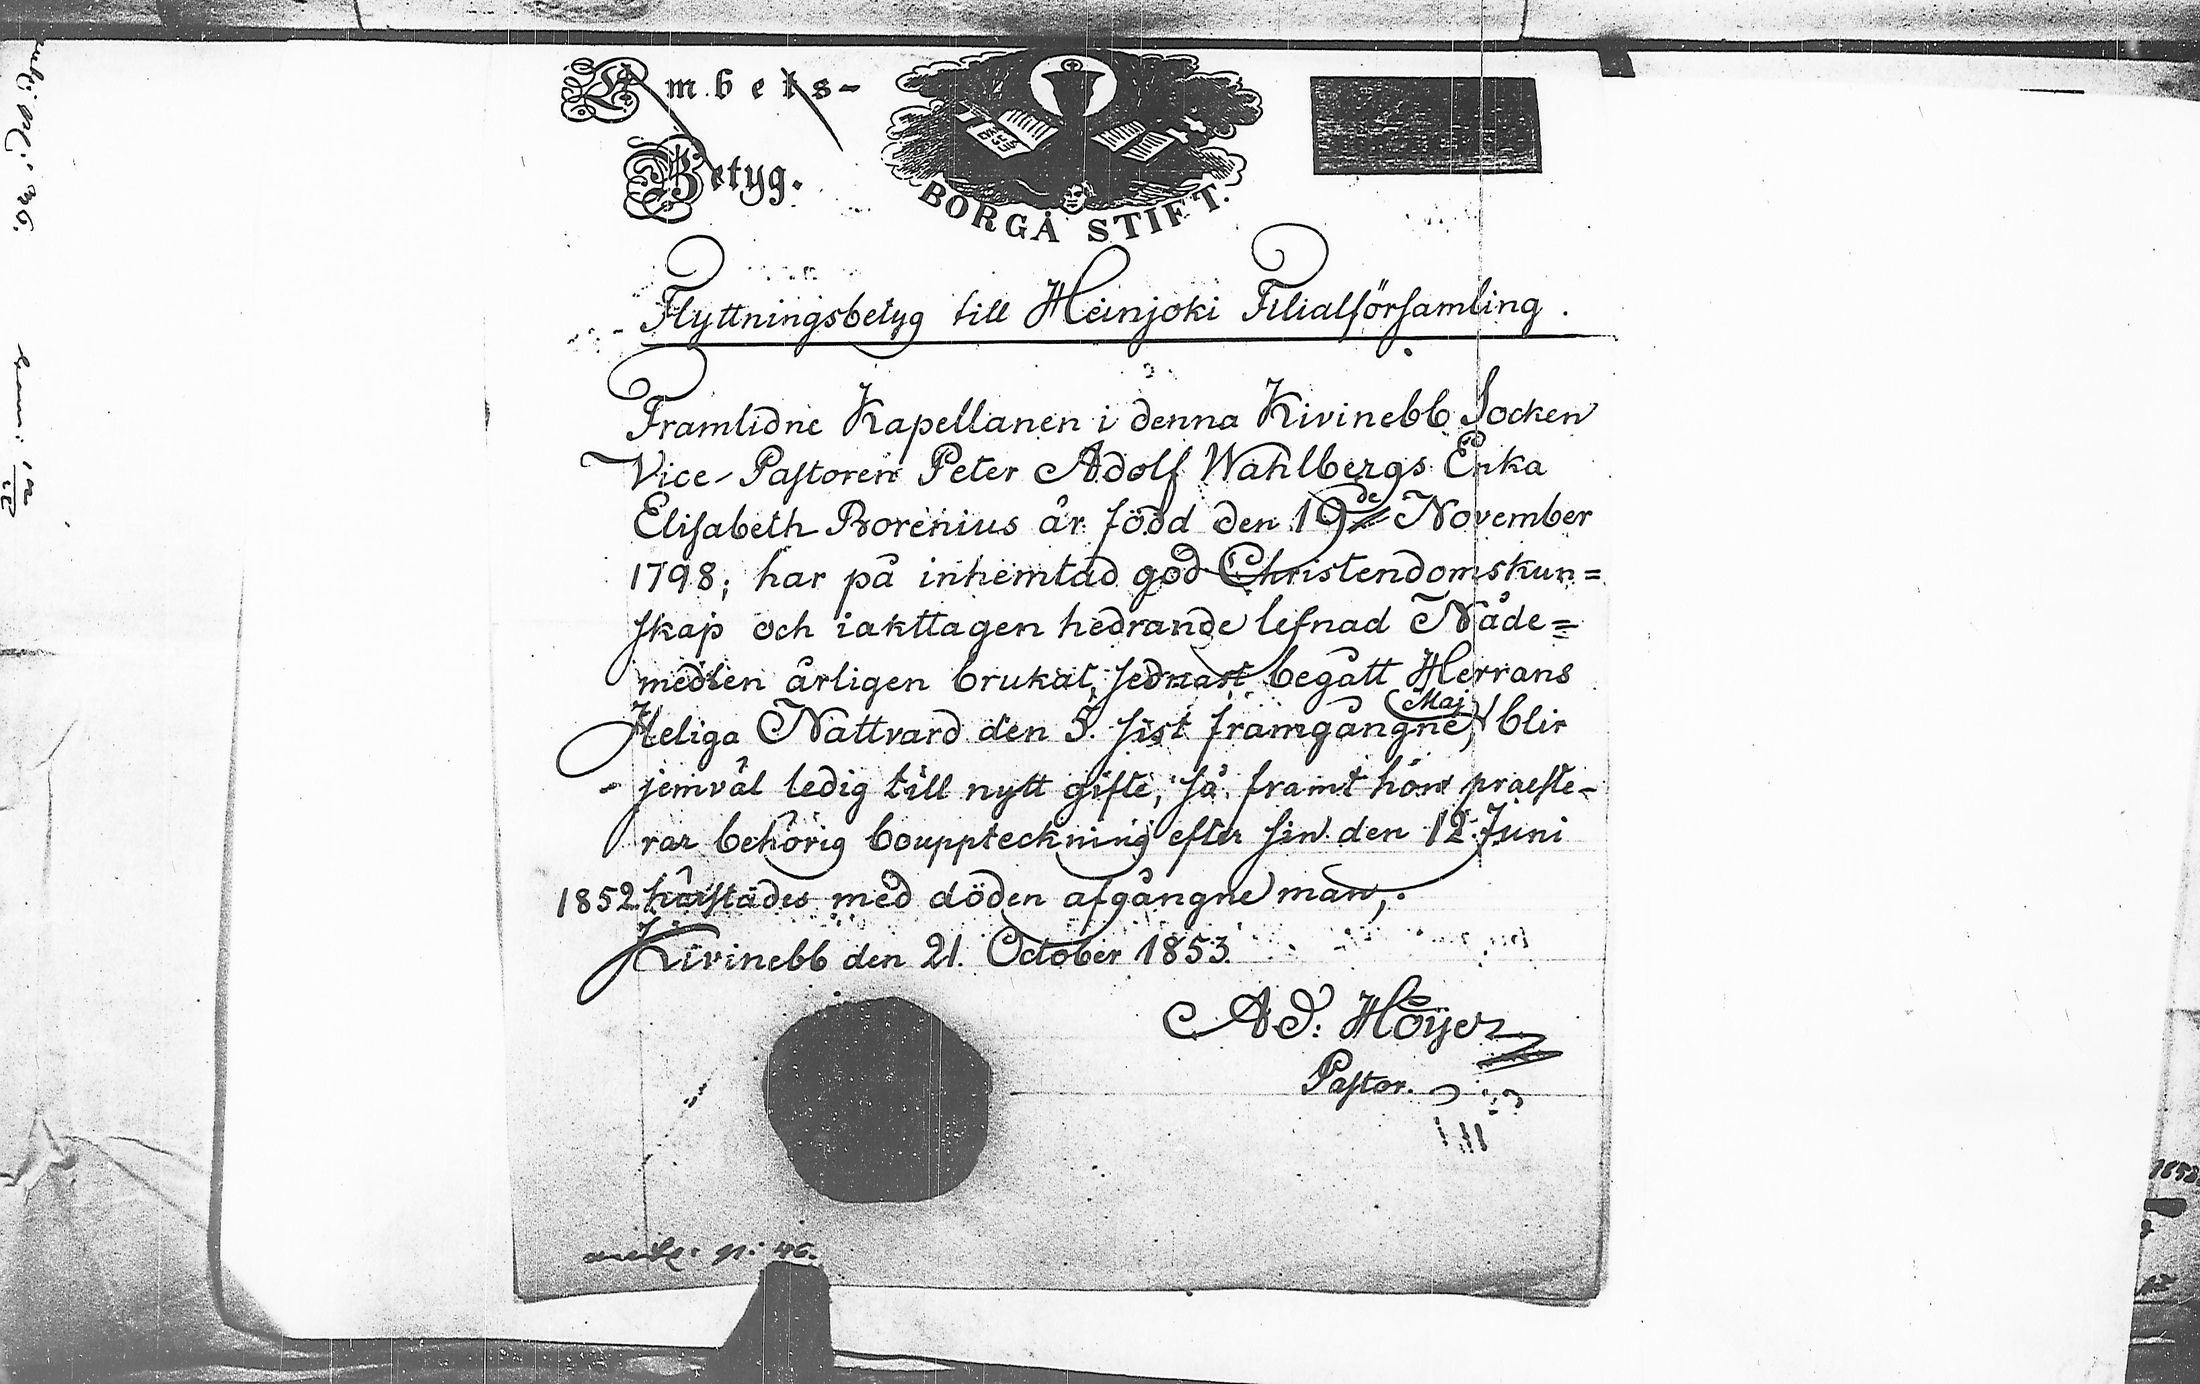 Ambets-
Betyg.
BORGÅ STIFT.
Flyttningsbetyg till Heinjoki Filialförsamling.
Framlidne Kapellanen i denna Kivinebb Socken
Vice-Pastoren Peter Adolf Wahlbergs Enka
Elisabeth Borenius är född den 19de November
1798; har på inhemtad god Christendomskun=
skap och iakttagen hedrande lefnad Nåde=
medlen årligen brukat, sednast begått Herrans
Heliga Nattvard den 5. sist framgångne Maj, blir
jemväl ledig till nytt gifte, så framt hon praeste-
rar behörig bouppteckning efter sin den 12 Juni
1852 härstädes med döden afgångne man,.
Kivinebb den 21. October 1853.
Ad: Höijer
Pastor.
p: 46.